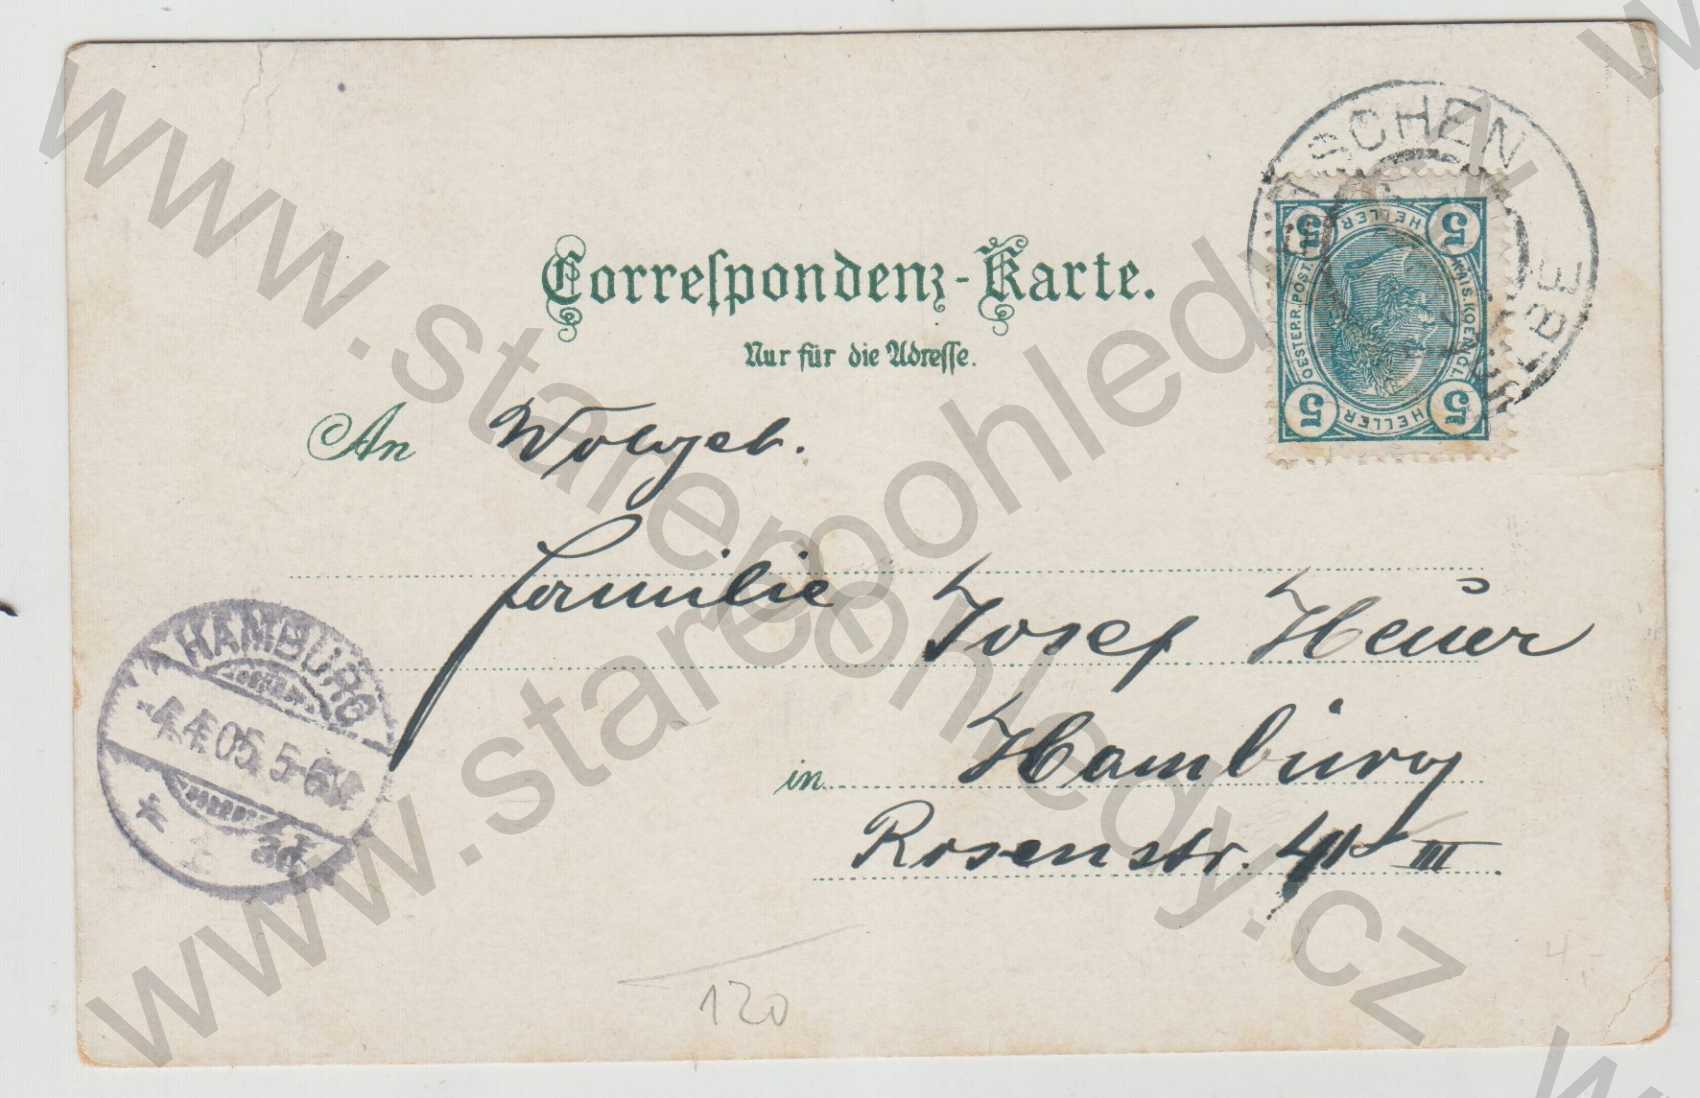 Correspondenz-Karte.
Nur für die Adresse.
An Wolgeb.
Familie Josef Heuer
in Hamburg
Rosenstr. 41 III
120
HAMBURG
4.4.05. 5-6
TSCHEN
ELBE
5 HELLER 5
OESTERR. POST. KAIS. KOENIGL.
5 HELLER 5
www.starepohledy.cz
www.starepohledy.cz